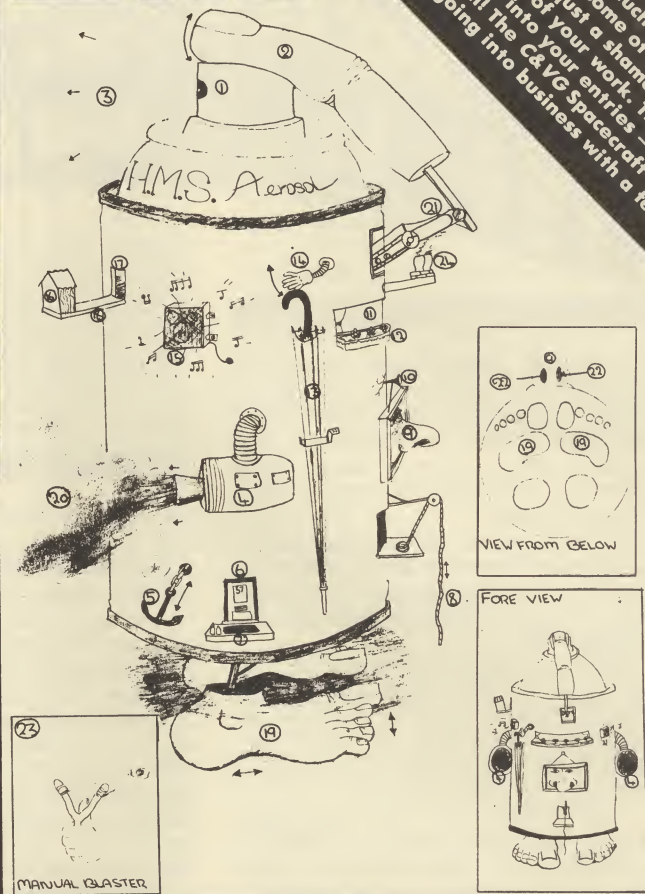 ome of
just a sham
of your work.
into your entries —
The C&VG Spacecraft
going into business with a
2
1
3
H.M.S. Aerosol
21
14
24
17
16
18
15
11
12
13
10
9
4
20
5
6
7
8
19
22
22
19
19
VIEW FROM BELOW
FORE VIEW
23
MANUAL BLASTER